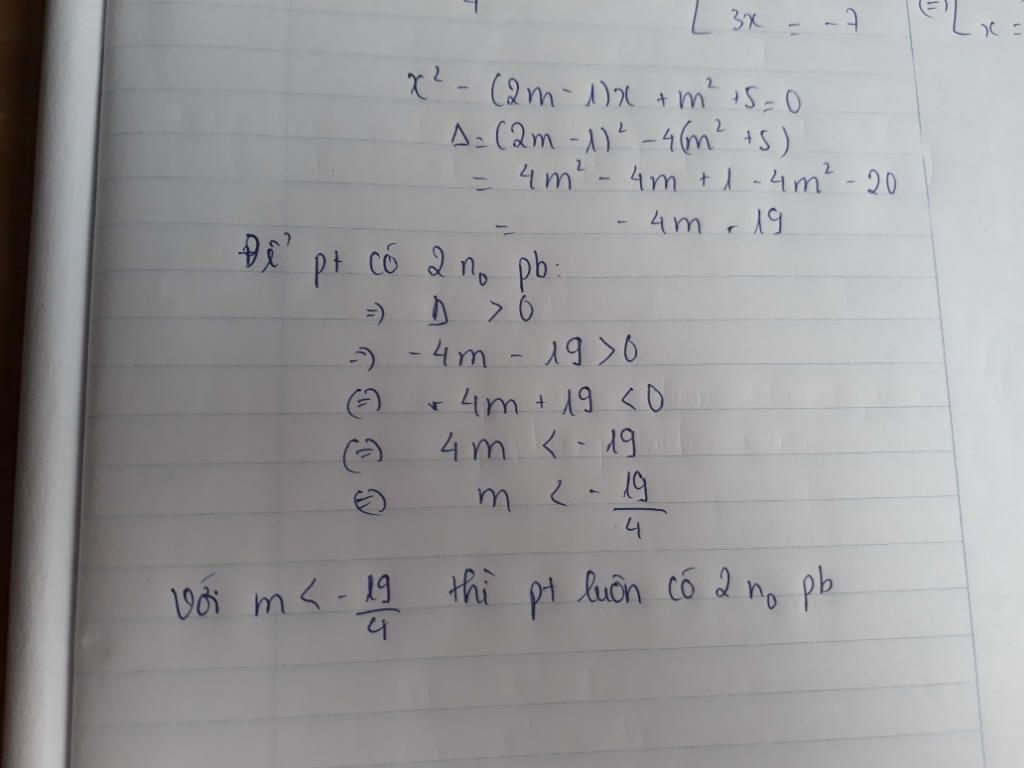 3x = -7
(=) [ x =
x² - (2m - 1)x + m² + 5 = 0
Δ = (2m - 1)² - 4(m² + 5)
= 4m² - 4m + 1 - 4m² - 20
= - 4m - 19
Để pt có 2 n₀ pb:
=) Δ > 0
=) - 4m - 19 > 0
(=) 4m + 19 < 0
(=) 4m < - 19
(=) m < - 19/4
Với m < - 19/4 thì pt luôn có 2 n₀ pb